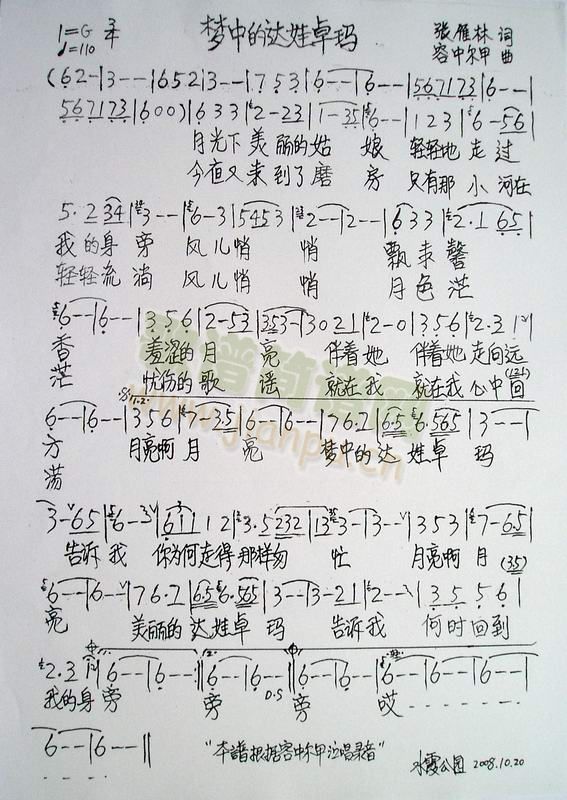 1=G 3/4
♩=110
梦中的达娃卓玛
张雁林 词
容中尔甲 曲
(62-|3--|1652|3--|1753|6--|6--|567173|6--|
567173|600)|633|2-23|1-35|6--|123|6-56|
月光下美丽的姑娘 轻轻地走过
今夜又来到了磨房 只有那小河在
5·234|3--|6-3|5453|2--|2--|633|2·165|
我的身旁 风儿悄悄 飘来馨
轻轻流淌 风儿悄悄 月色茫
6--|6--|3·56|2-53|353-|3021|2-0|3·56|2·31|
香 羞涩的月亮 伴着她 伴着她走向远
茫 忧伤的歌谣 就在我 就在我心中回
6--|6--|356|7-35|6--|6--|76·2|6·56·565|3--|
方 月亮啊月亮 梦中的达娃卓玛
荡
3-65|6-3|6112|3·5232|133-|3--|353|7-65|
告诉我 你为何走得那样匆忙 月亮啊月
(35)
6--|6--|76·2|6·56·565|3--|3-21|2--|3556|
亮 美丽的达娃卓玛 告诉我 何时回到
2·31|6--|6--:‖6--|6--‖6--|6--|6--|6--|6--|
D.S
我的身旁 旁 旁 哎
6--|6--‖
"本譜根据容中尔甲演唱录音"
水霞公园 2008.10.20